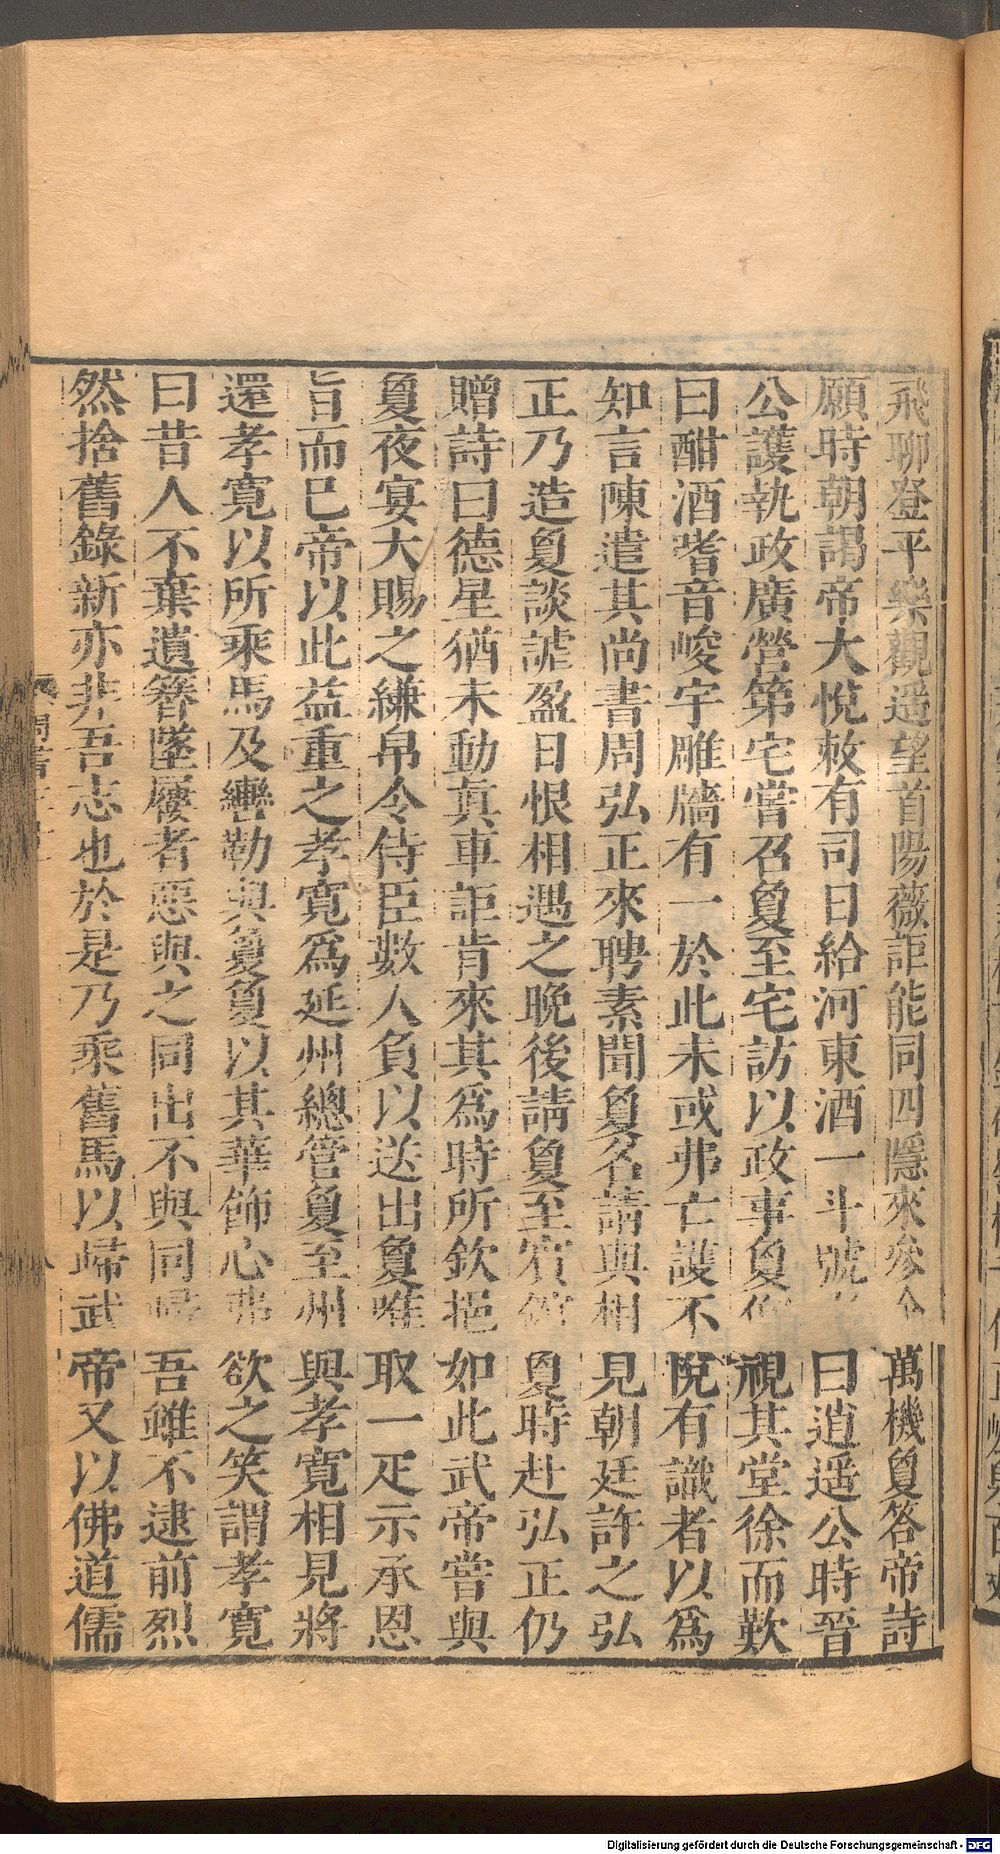 飛聊登平樂觀遥望首陽薇詎能同四隱來參余萬機敻答帝詩
願時朝謁帝大悅敕有司日給河東酒一斗號曰逍遥公時晉
公護執政廣營第宅嘗召敻至宅訪以政事敻仰視其堂徐而歎
曰酣酒嗜音峻宇雕牆有一於此未或弗亡護不悅有識者以爲
知言陳遣其尚書周弘正來聘素聞敻名請與相見朝廷許之弘
正乃造敻談謔盈日恨相遇之晚後請敻至賓館敻時赴弘正仍
贈詩曰德星猶未動真車詎肯來其爲時所欽挹如此武帝嘗與
敻夜宴大賜之縑帛令侍臣數人負以送出敻唯取一疋示承恩
旨而已帝以此益重之孝寬爲延州總管敻至州與孝寬相見將
還孝寬以所乘馬及轡勒與敻敻以其華飾心弗欲之笑謂孝寬
曰昔人不棄遺簪墜屨者惡與之同出不與同歸吾雖不逮前烈
然捨舊錄新亦非吾志也於是乃乘舊馬以歸武帝又以佛道儒
Digitalisierung gefördert durch die Deutsche Forschungsgemeinschaft - DFG